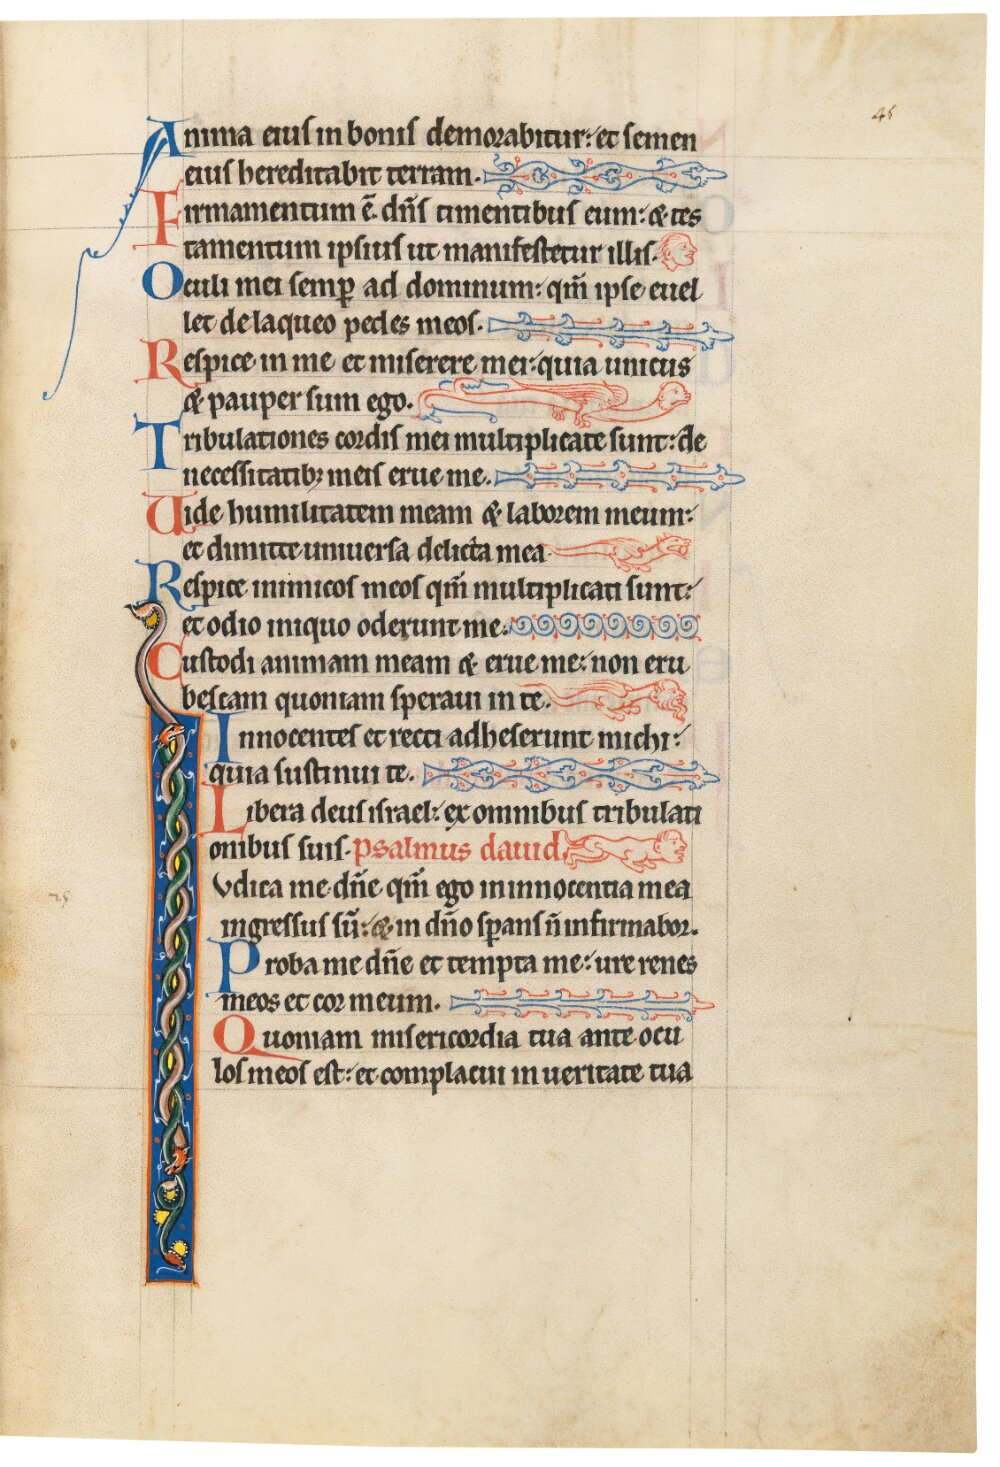 45
Anima eius in bonis demorabitur: et semen
eius hereditabit terram.
Firmamentum ē dn̄s timentibus eum: & tes
tamentum ipsius ut manifestetur illis.
Oculi mei semꝑ ad dominum: qm̄ ipse euel
let de laqueo pedes meos.
Respice in me et miserere mei: quia unicus
& pauper sum ego.
Tribulationes cordis mei multiplicate sunt: de
necessitatibꝫ meis erue me.
Uide humilitatem meam & laborem meum:
et dimitte uniuersa delicta mea
Respice inimicos meos qm̄ multiplicati sunt:
et odio iniquo oderunt me.
Custodi animam meam & erue me: non eru
bescam quoniam speraui in te.
Innocentes et recti adheserunt michi:
quia sustinui te.
Libera deus israel: ex omnibus tribulati
onibus suis. psalmus dauid.
Iudica me dn̄e qm̄ ego in innocentia mea
ingressus sū: & in dn̄o sꝑans n̄ infirmabor.
Proba me dn̄e et tempta me: ure renes
meos et cor meum.
Quoniam misericordia tua ante ocu
los meos est: et complacui in ueritate tua
25